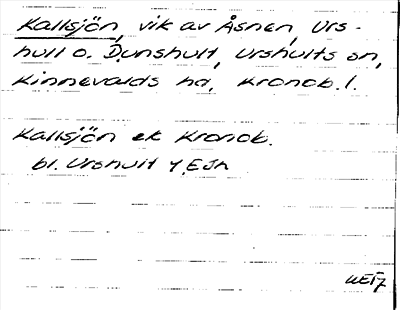 Kallsjön, vik av Åsnen, Urs-
hult o. Dunshult, Urshults sn,
Kinnevalds hd, Kronob. l.
Kallsjön ek Kronob.
bl. Urshult Y, EJA